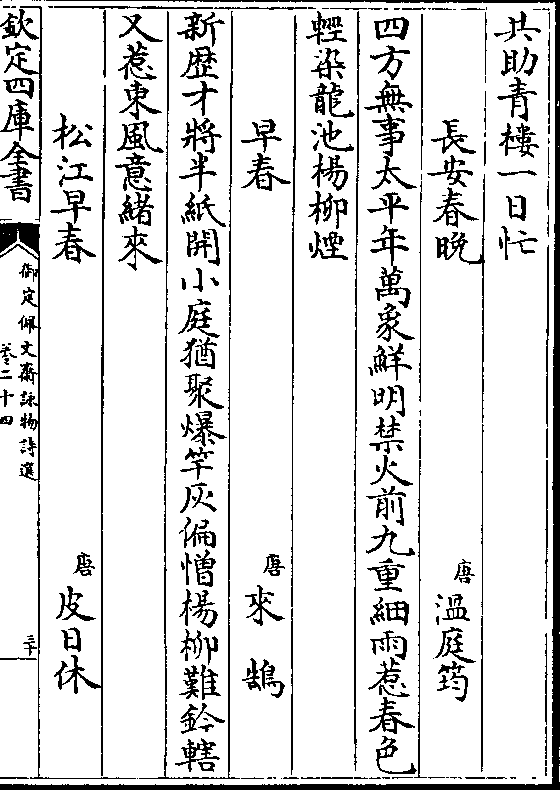 共助青樓一日忙
長安春晩 唐 溫庭筠
四方無事太平年萬象鮮明禁火前九重細雨惹春色
輕染龍池楊柳煙
早春 唐 來鵠
新歴才將半紙開小庭猶聚爆竿灰偏憎楊柳難鈐轄
又惹東風意緒來
松江早春 唐 皮日休
欽定四庫全書 御定佩文齋詠物詩選 卷二十四 三十